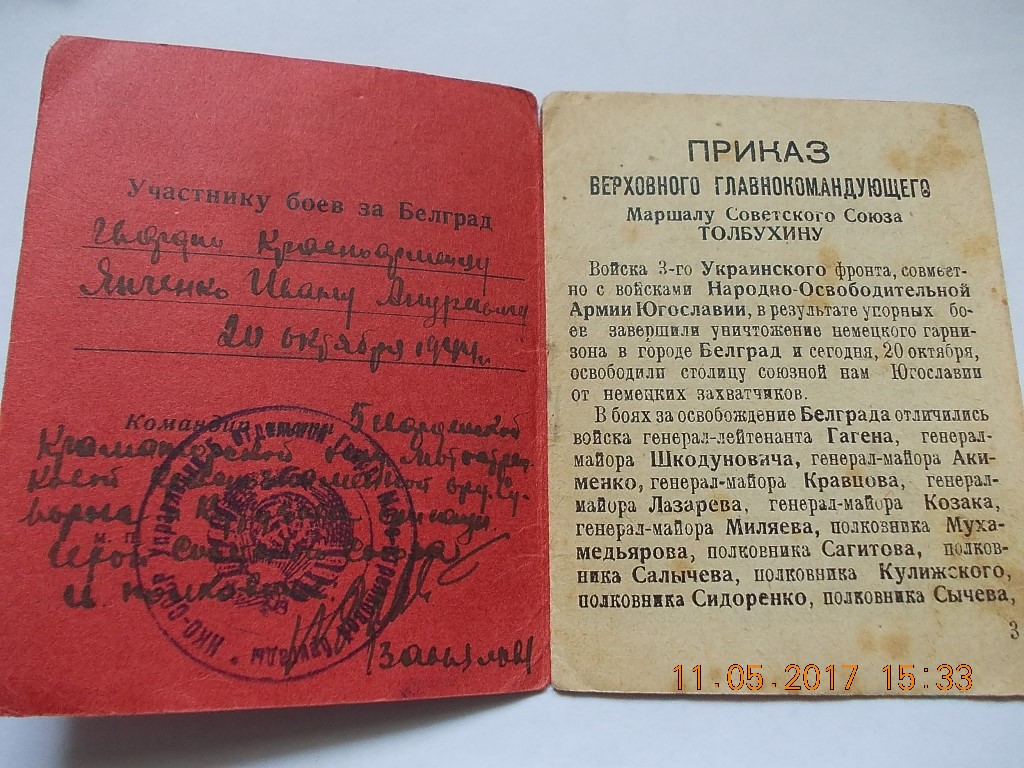 Участнику боев за Белград
Гвардии Красноармейцу
Янченко Ивану
20 октября 1944 г.
Командир 5 Гвардейской
Героя Советского Союза
Завьялов
М. П.
НКО-СССР
ПРИКАЗ
ВЕРХОВНОГО ГЛАВНОКОМАНДУЮЩЕГО
Маршалу Советского Союза
ТОЛБУХИНУ
Войска 3-го Украинского фронта, совмест-
но с войсками Народно-Освободительной
Армии Югославии, в результате упорных бо-
ев завершили уничтожение немецкого гарни-
зона в городе Белград и сегодня, 20 октября,
освободили столицу союзной нам Югославии
от немецких захватчиков.
В боях за освобождение Белграда отличились
войска генерал-лейтенанта Гагена, генерал-
майора Шкодуновича, генерал-майора Аки-
менко, генерал-майора Кравцова, генерал-
майора Лазарева, генерал-майора Козака,
генерал-майора Миляева, полковника Муха-
медьярова, полковника Сагитова, полков-
ника Салычева, полковника Кулижского,
полковника Сидоренко, полковника Сычева,
3
11.05.2017 15:33